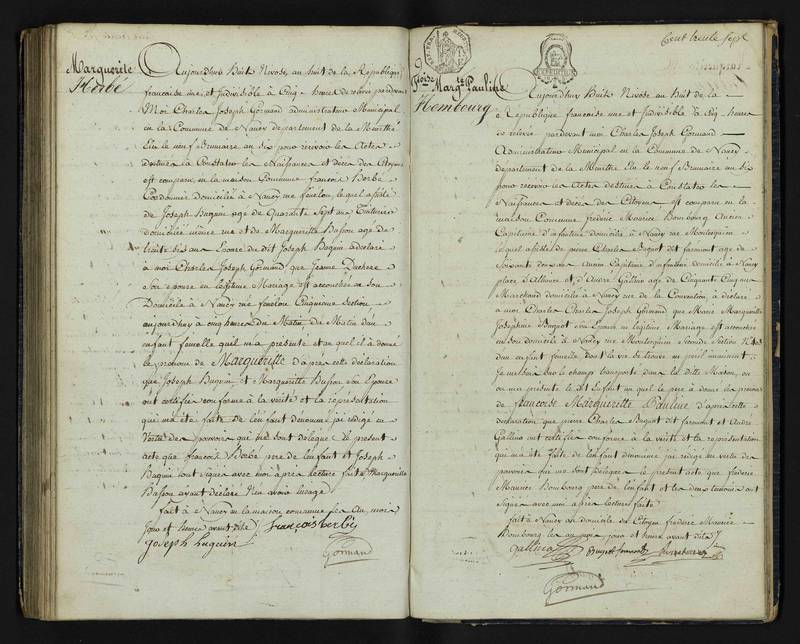 Marguerite
Herbé
Aujourd'huy Huit Nivose, au huit de la Republique
francoise une, et indivisible à Cinq heures de relevée pardevant
Moi Charles Joseph Gormand administrateur Municipal
en la Commune de Nancy departement de la Meurthe
Elu le neuf Brumaire an six pour recevoir les Actes
destinés à Constater les Naissances et décès des Citoyens
est comparu en la maison Commune francois Herbé
Cordonnier domicilié à Nancy rue fénélon, lequel assisté
de Joseph Huguin age de Quarante Sept ans Teinturier
domicilié même rue et de Marguerite Busson age de
trente six ans Epouse du dit Joseph Huguin a declaré
à moi Charles Joseph Gormand, que Jeanne Duchene
son epouse en legitime Mariage est accouchée en son
Domicile à Nancy rue fénélon Cinquieme Section
aujourd'huy à cinq heures du Matin, du Matin d'un
enfant femelle quil m'a présenté et au quel il a donné
le prenom de Marguerite d'après cette déclaration
que Joseph Huguin et Marguerite Busson son Epouse
ont certifié conforme à la verité et la représentation
qui m'a été faite de l'enfant dénommé j'ai rédigé en
Vertu des pouvoirs qui me sont délégués le présent
acte que francois Herbé pere de l'enfant et Joseph
Huguin l'ont Signé avec moi après lecture faite Marguerite
Busson ayant déclaré n'en avoir l'usage
fait à Nancy en la maison commune les an mois
jour et heure avant dits
françois herbé
Joseph huguin
Gormand
Cent trente Sept
foise Margte Pauline
Hembourg
Aujourd'huy Huit Nivose au Huit de la
République francoise une et Indivisible à Six heures
de relevée pardevant moi Charles Joseph Gormand
Administrateur Municipal en la Commune de Nancy
departement de la Meurthe Elu le neuf Brumaire an six
pour recevoir les Actes destinés à Constater les
Naissances et décès des Citoyens est comparu en la
maison Commune fréderic Maurice Hombourg Ancien
Capitaine d'infanterie domicilié à Nancy rue Montesquieu
lequel assisté de pierre Charles Buquet dit farmont age de
Soixante deux ans Ancien Capitaine d'infanterie domicilié à Nancy
place d'alliance et d'André Gallino age de Cinquante Cinq ans
Marchand domicilié à Nancy rue de la Convention, a déclaré
à moi Charles Charles Joseph Gormand que Marie Marguerite
Josephine son Epouse en legitime Mariage est accouchée
en son domicile à Nancy rue Montesquieu Seconde Section
d'un enfant femelle dont la vie se trouve en peril imminent
Je me suis sur le champs transporté dans la ditte Maison, ou
on m'a présenté le dit Enfant au quel le pere a donné les prenoms
de francoise Marguerite Pauline d'après cette
declaration que pierre Charles Buquet dit farmont et André
Gallino ont certifié conforme à la verité et la représentation
qui m'a été faite de l'enfant dénommé j'ai rédigé en vertu des
pouvoirs qui me sont délégués le présent acte que fréderic
Maurice Hombourg pere de l'enfant et les deux temoins ont
Signé avec moi après lecture faite
fait à Nancy au domicile du Citoyen fréderic Maurice
Hombourg les an mois, jour et heure avant dits
Gallino
Gormand